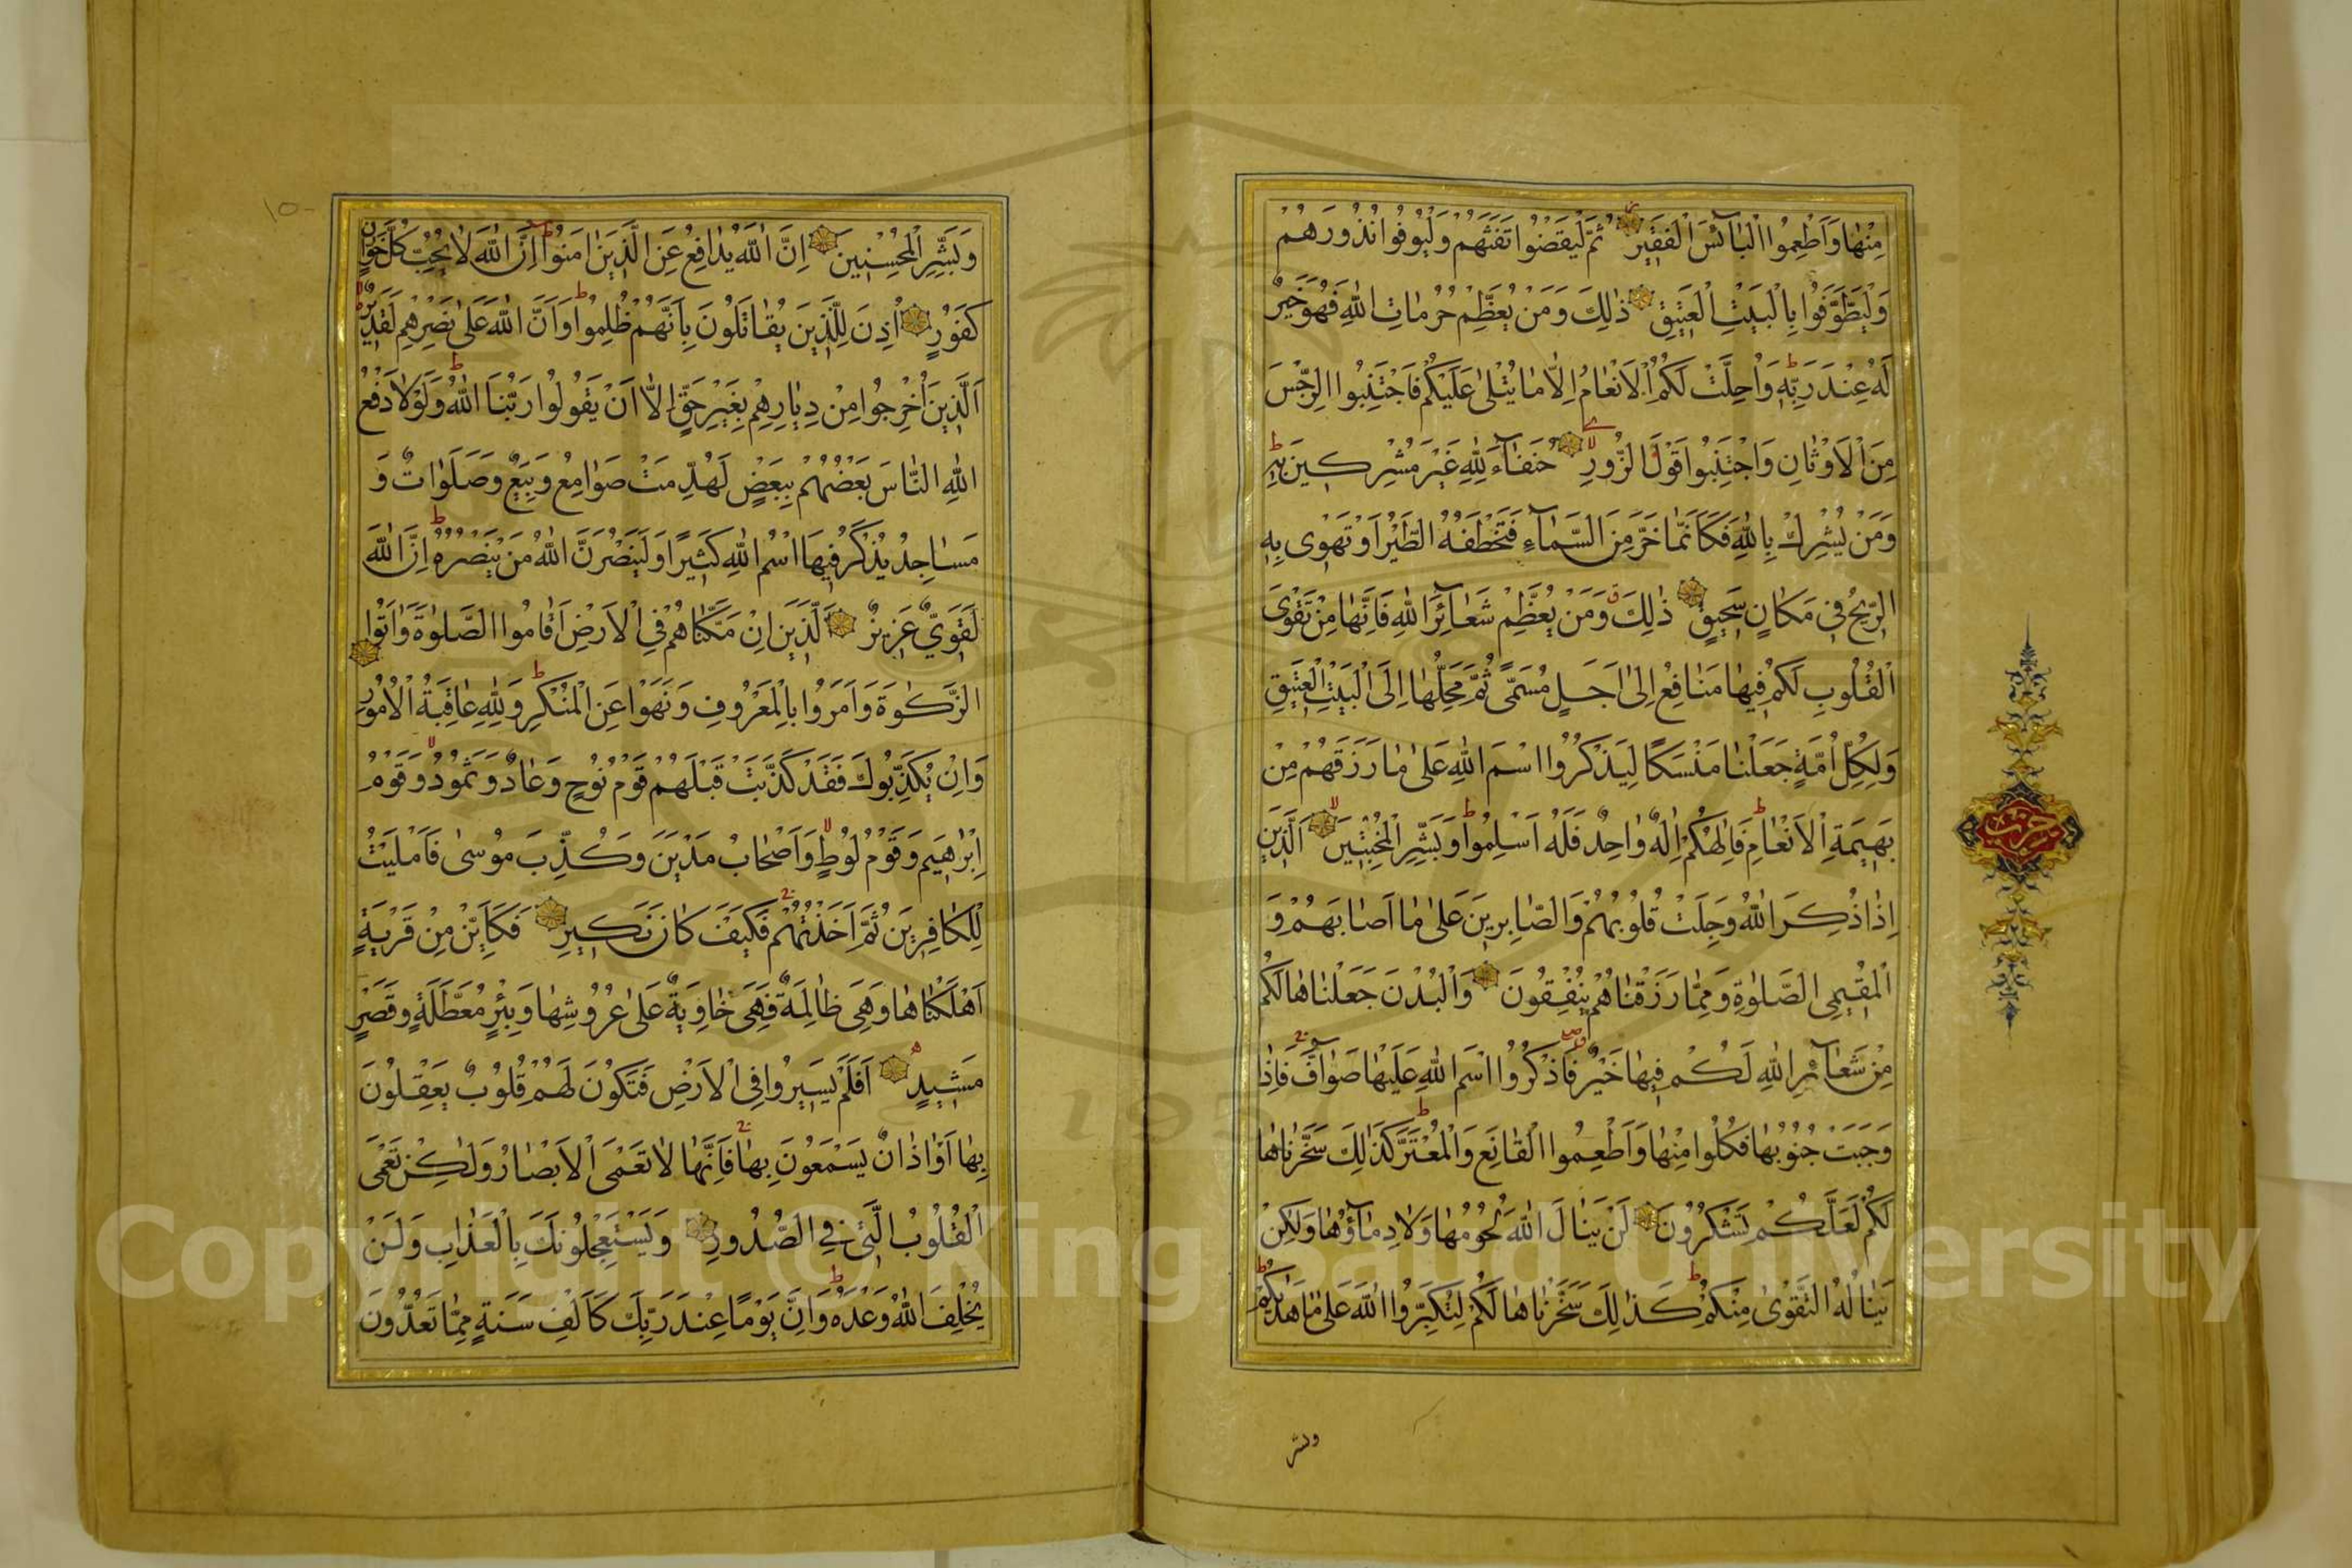 مِنْهَا وَأَطْعِمُوا الْبَآئِسَ الْفَقِيرَ ثُمَّ لْيَقْضُوا تَفَثَهُمْ وَلْيُوفُوا نُذُورَهُمْ
وَلْيَطَّوَّفُوا بِالْبَيْتِ الْعَتِيقِ ذٰلِكَ وَمَنْ يُعَظِّمْ حُرُمَاتِ اللّٰهِ فَهُوَ خَيْرٌ
لَهُ عِنْدَ رَبِّهِ وَاُحِلَّتْ لَكُمُ الْاَنْعَامُ اِلَّا مَا يُتْلٰى عَلَيْكُمْ فَاجْتَنِبُوا الرِّجْسَ
مِنَ الْاَوْثَانِ وَاجْتَنِبُوا قَوْلَ الزُّورِ حُنَفَآءَ لِلّٰهِ غَيْرَ مُشْرِكِينَ بِهِ
وَمَنْ يُشْرِكْ بِاللّٰهِ فَكَاَنَّمَا خَرَّ مِنَ السَّمَآءِ فَتَخْطَفُهُ الطَّيْرُ اَوْ تَهْوِى بِهِ
الرِّيحُ فِى مَكَانٍ سَحِيقٍ ذٰلِكَ وَمَنْ يُعَظِّمْ شَعَآئِرَ اللّٰهِ فَاِنَّهَا مِنْ تَقْوَى
الْقُلُوبِ لَكُمْ فِيهَا مَنَافِعُ اِلٰى اَجَلٍ مُسَمًّى ثُمَّ مَحِلُّهَا اِلَى الْبَيْتِ الْعَتِيقِ
وَلِكُلِّ اُمَّةٍ جَعَلْنَا مَنْسَكًا لِيَذْكُرُوا اسْمَ اللّٰهِ عَلٰى مَا رَزَقَهُمْ مِنْ
بَهِيمَةِ الْاَنْعَامِ فَاِلٰهُكُمْ اِلٰهٌ وَاحِدٌ فَلَهُ اَسْلِمُوا وَبَشِّرِ الْمُخْبِتِينَ اَلَّذِينَ
اِذَا ذُكِرَ اللّٰهُ وَجِلَتْ قُلُوبُهُمْ وَالصَّابِرِينَ عَلٰى مَا اَصَابَهُمْ وَ
الْمُقِيمِى الصَّلٰوةِ وَمِمَّا رَزَقْنَاهُمْ يُنْفِقُونَ وَالْبُدْنَ جَعَلْنَاهَا لَكُمْ
مِنْ شَعَآئِرِ اللّٰهِ لَكُمْ فِيهَا خَيْرٌ فَاذْكُرُوا اسْمَ اللّٰهِ عَلَيْهَا صَوَآفَّ فَاِذَا
وَجَبَتْ جُنُوبُهَا فَكُلُوا مِنْهَا وَاَطْعِمُوا الْقَانِعَ وَالْمُعْتَرَّ كَذٰلِكَ سَخَّرْنَاهَا
لَكُمْ لَعَلَّكُمْ تَشْكُرُونَ لَنْ يَنَالَ اللّٰهَ لُحُومُهَا وَلَا دِمَآؤُهَا وَلٰكِنْ
يَنَالُهُ التَّقْوٰى مِنْكُمْ كَذٰلِكَ سَخَّرْنَاهَا لَكُمْ لِتُكَبِّرُوا اللّٰهَ عَلٰى مَا هَدٰيكُمْ
وبشر
حزب
١٥٠
وَبَشِّرِ الْمُحْسِنِينَ اِنَّ اللّٰهَ يُدَافِعُ عَنِ الَّذِينَ اٰمَنُوا اِنَّ اللّٰهَ لَا يُحِبُّ كُلَّ خَوَّانٍ
كَفُورٍ اُذِنَ لِلَّذِينَ يُقَاتَلُونَ بِاَنَّهُمْ ظُلِمُوا وَاَنَّ اللّٰهَ عَلٰى نَصْرِهِمْ لَقَدِيرٌ
اَلَّذِينَ اُخْرِجُوا مِنْ دِيَارِهِمْ بِغَيْرِ حَقٍّ اِلَّا اَنْ يَقُولُوا رَبُّنَا اللّٰهُ وَلَوْلَا دَفْعُ
اللّٰهِ النَّاسَ بَعْضَهُمْ بِبَعْضٍ لَهُدِّمَتْ صَوَامِعُ وَبِيَعٌ وَصَلَوَاتٌ وَ
مَسَاجِدُ يُذْكَرُ فِيهَا اسْمُ اللّٰهِ كَثِيرًا وَلَيَنْصُرَنَّ اللّٰهُ مَنْ يَنْصُرُهُ اِنَّ اللّٰهَ
لَقَوِىٌّ عَزِيزٌ اَلَّذِينَ اِنْ مَكَّنَّاهُمْ فِى الْاَرْضِ اَقَامُوا الصَّلٰوةَ وَاٰتَوُا
الزَّكٰوةَ وَاَمَرُوا بِالْمَعْرُوفِ وَنَهَوْا عَنِ الْمُنْكَرِ وَلِلّٰهِ عَاقِبَةُ الْاُمُورِ
وَاِنْ يُكَذِّبُوكَ فَقَدْ كَذَّبَتْ قَبْلَهُمْ قَوْمُ نُوحٍ وَعَادٌ وَثَمُودُ وَقَوْمُ
اِبْرٰهِيمَ وَقَوْمُ لُوطٍ وَاَصْحَابُ مَدْيَنَ وَكُذِّبَ مُوسٰى فَاَمْلَيْتُ
لِلْكَافِرِينَ ثُمَّ اَخَذْتُهُمْ فَكَيْفَ كَانَ نَكِيرِ فَكَاَيِّنْ مِنْ قَرْيَةٍ
اَهْلَكْنَاهَا وَهِىَ ظَالِمَةٌ فَهِىَ خَاوِيَةٌ عَلٰى عُرُوشِهَا وَبِئْرٍ مُعَطَّلَةٍ وَقَصْرٍ
مَشِيدٍ اَفَلَمْ يَسِيرُوا فِى الْاَرْضِ فَتَكُونَ لَهُمْ قُلُوبٌ يَعْقِلُونَ
بِهَا اَوْ اٰذَانٌ يَسْمَعُونَ بِهَا فَاِنَّهَا لَا تَعْمَى الْاَبْصَارُ وَلٰكِنْ تَعْمَى
الْقُلُوبُ الَّتِى فِى الصُّدُورِ وَيَسْتَعْجِلُونَكَ بِالْعَذَابِ وَلَنْ
يُخْلِفَ اللّٰهُ وَعْدَهُ وَاِنَّ يَوْمًا عِنْدَ رَبِّكَ كَاَلْفِ سَنَةٍ مِمَّا تَعُدُّونَ
Copyright © King Saud University
1957